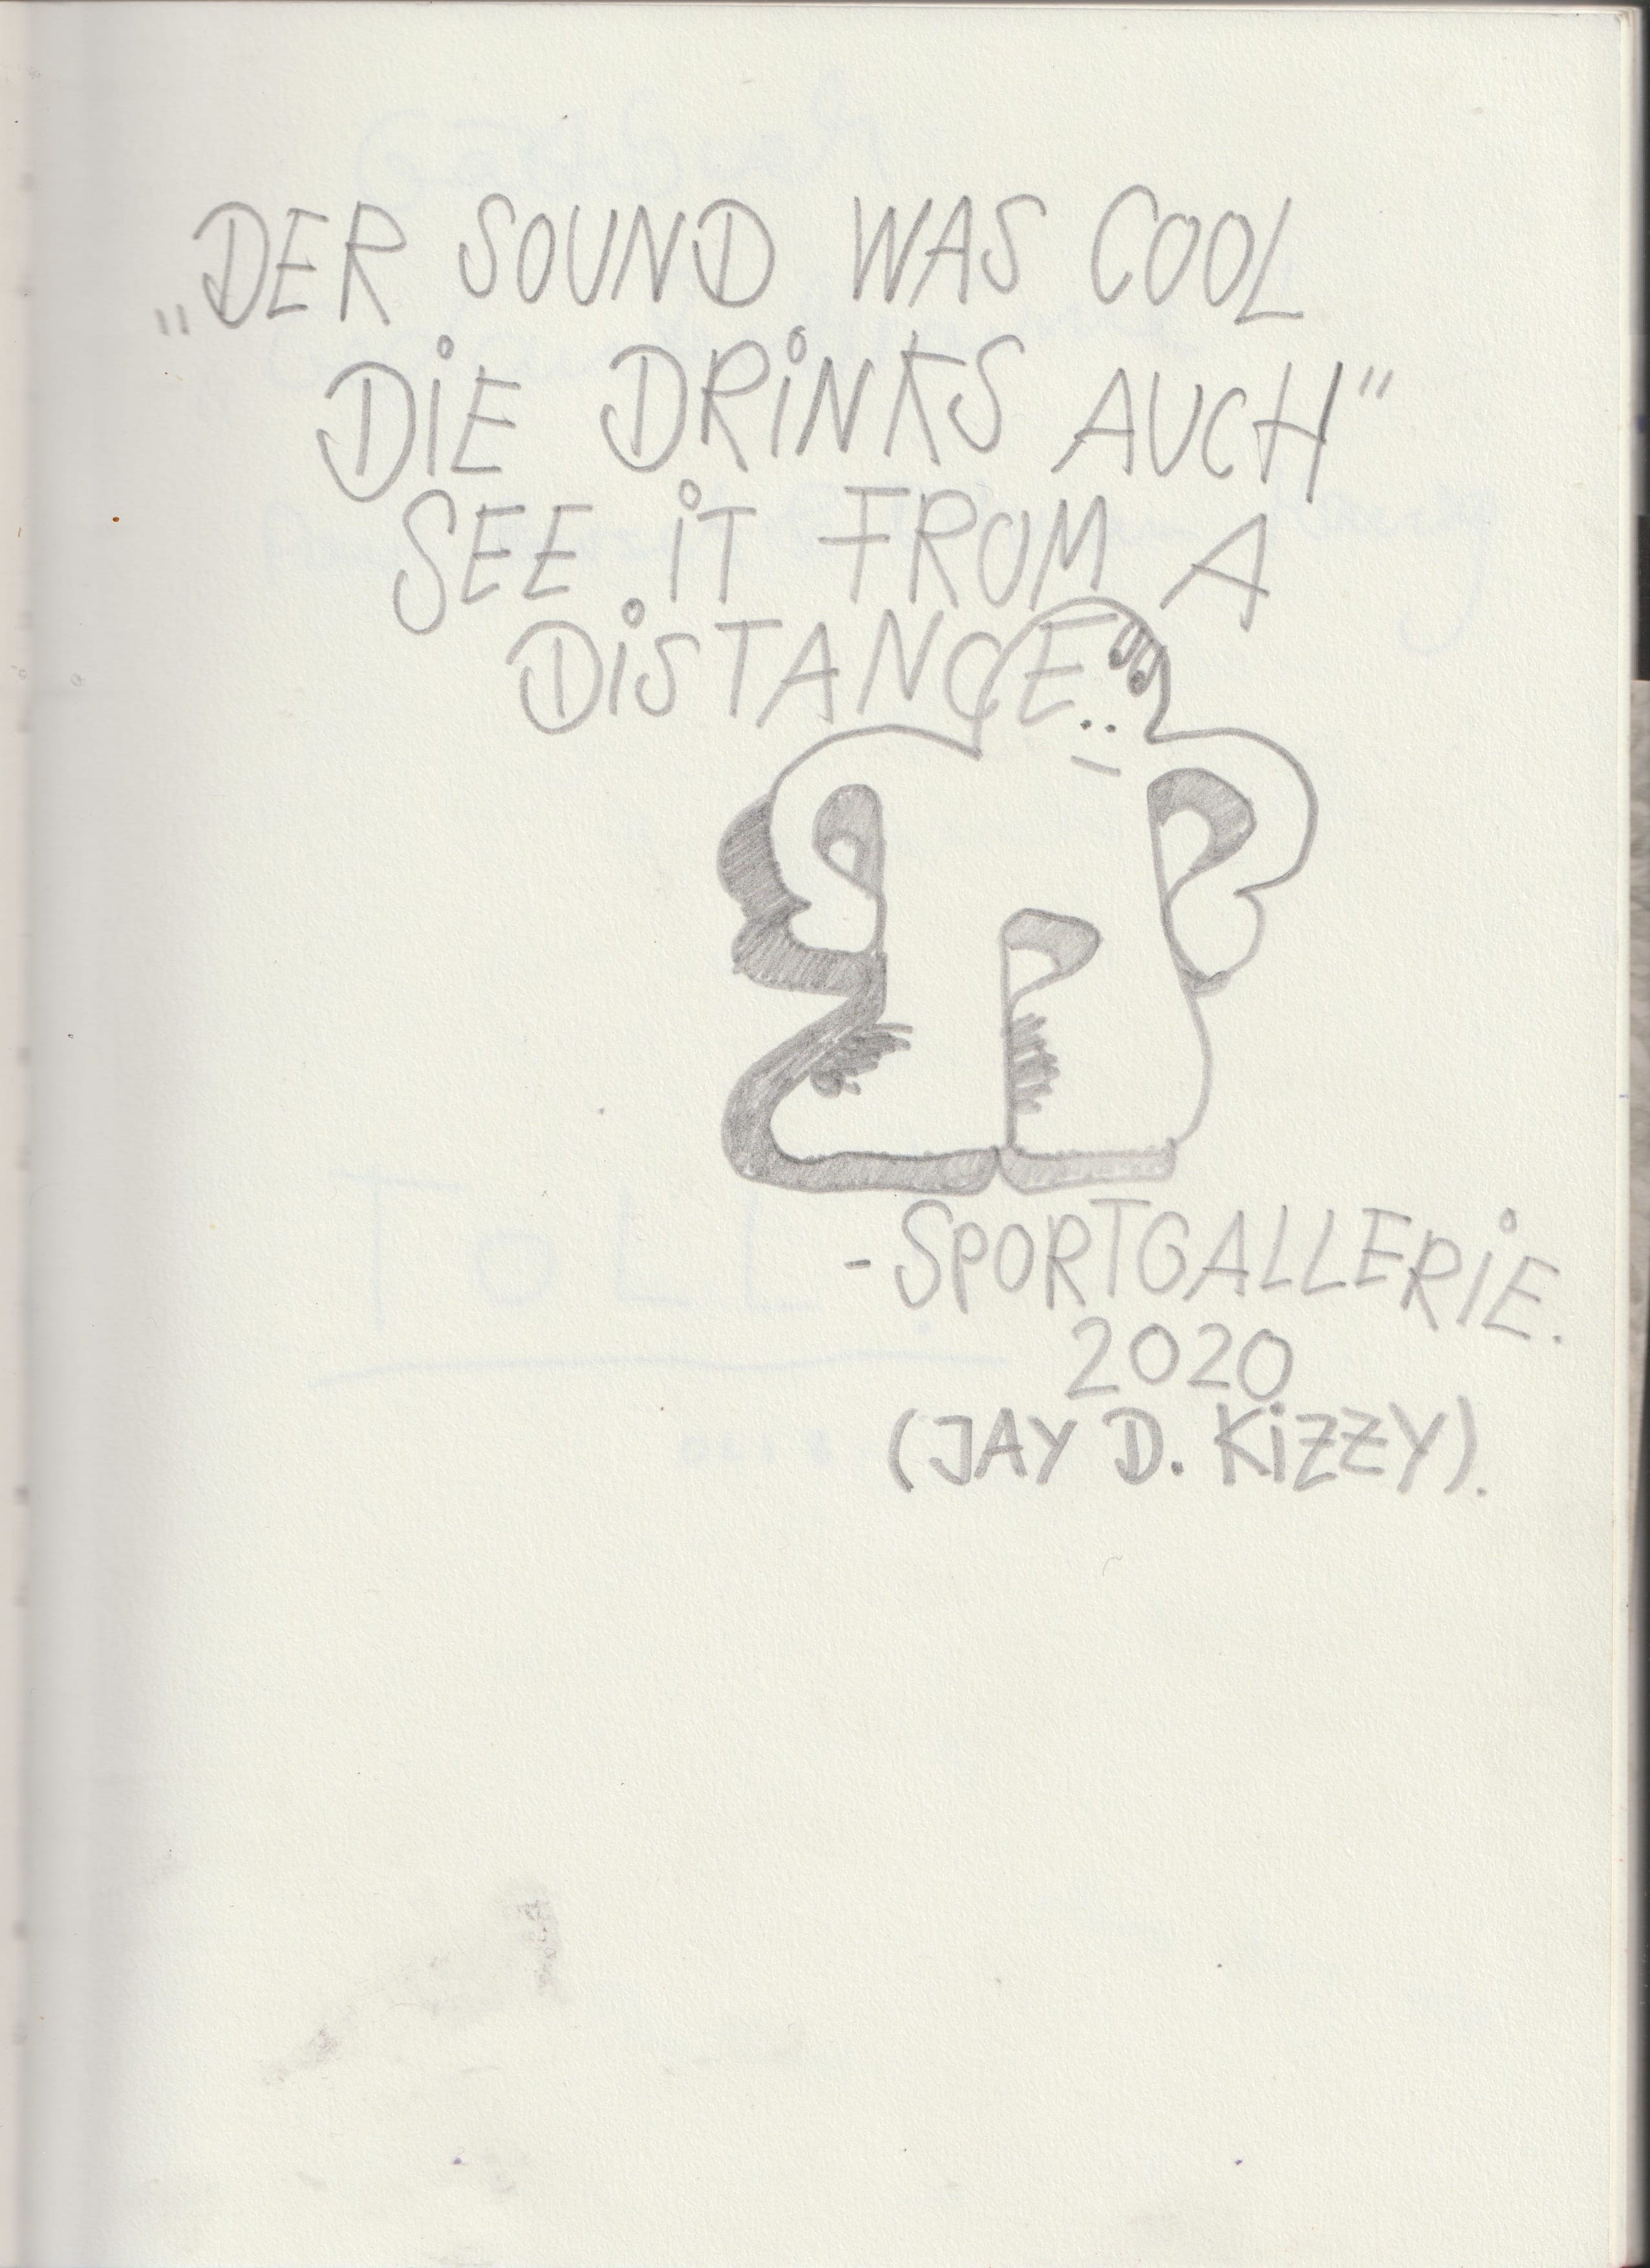 „DER SOUND WAS COOL
DiE DRiNKS AUCH"
SEE iT FROM A
DiSTANCE..
-SPORTGALLERiE.
2020
(JAY D. KiZZY).